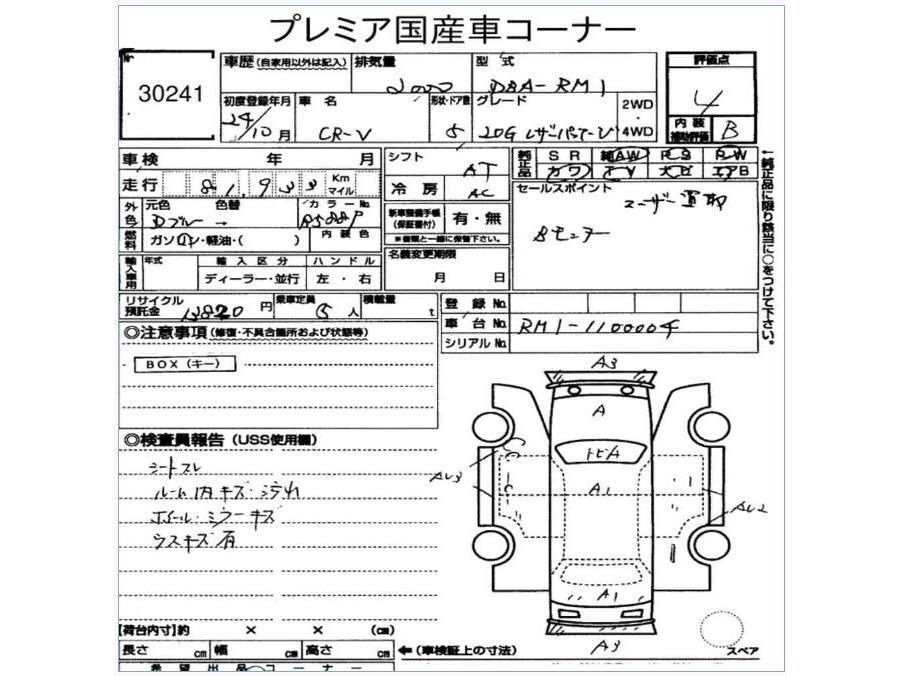 プレミア国産車コーナー
30241
車歴 (自家用以外は記入) 排気量 2000 型式 DBA-RM1 評価点 4
初度登録年月 24/10月 車名 CR-V 形状・ドア数 5 グレード 20G レザーパケージ 2WD・4WD 内装補助評価 B
車検 年 月 シフト AT 純正品 SR 純AW PS PW
走行 81,933 Km マイル 冷房 AC カワ TV ナビ エアB
外色 元色 Dブルー 色替 → カラーNo. B588P 新車整備手帳(保証書付) 有・無 セールスポイント ユーザー買取
燃料 ガソリン・軽油・( ) 内装色 ※書類と一緒に保管下さい。 Sセンサー
輸入車用 年式 輸入区分 ハンドル 名義変更期限
ディーラー・並行 左・右 月 日
リサイクル預託金 円 乗車定員 5人 積載量 t 登録No.
車台No. RM1-1100004
シリアルNo.
↑純正品に限り該当に○をつけて下さい。
◎注意事項 (修復・不具合箇所および状態等)
BOX (キー)
◎検査員報告 (USS使用欄)
シートスレ
ルーム内キズ・汚れ
ホイール・ミラーキズ
ウスキズ有
A3
A
トビA
AU3
A1
AU2
A1
A3
スペア
【荷台内寸】約 × × (cm)
長さ cm 幅 cm 高さ cm ←(車検証上の寸法)
希望出品コーナー